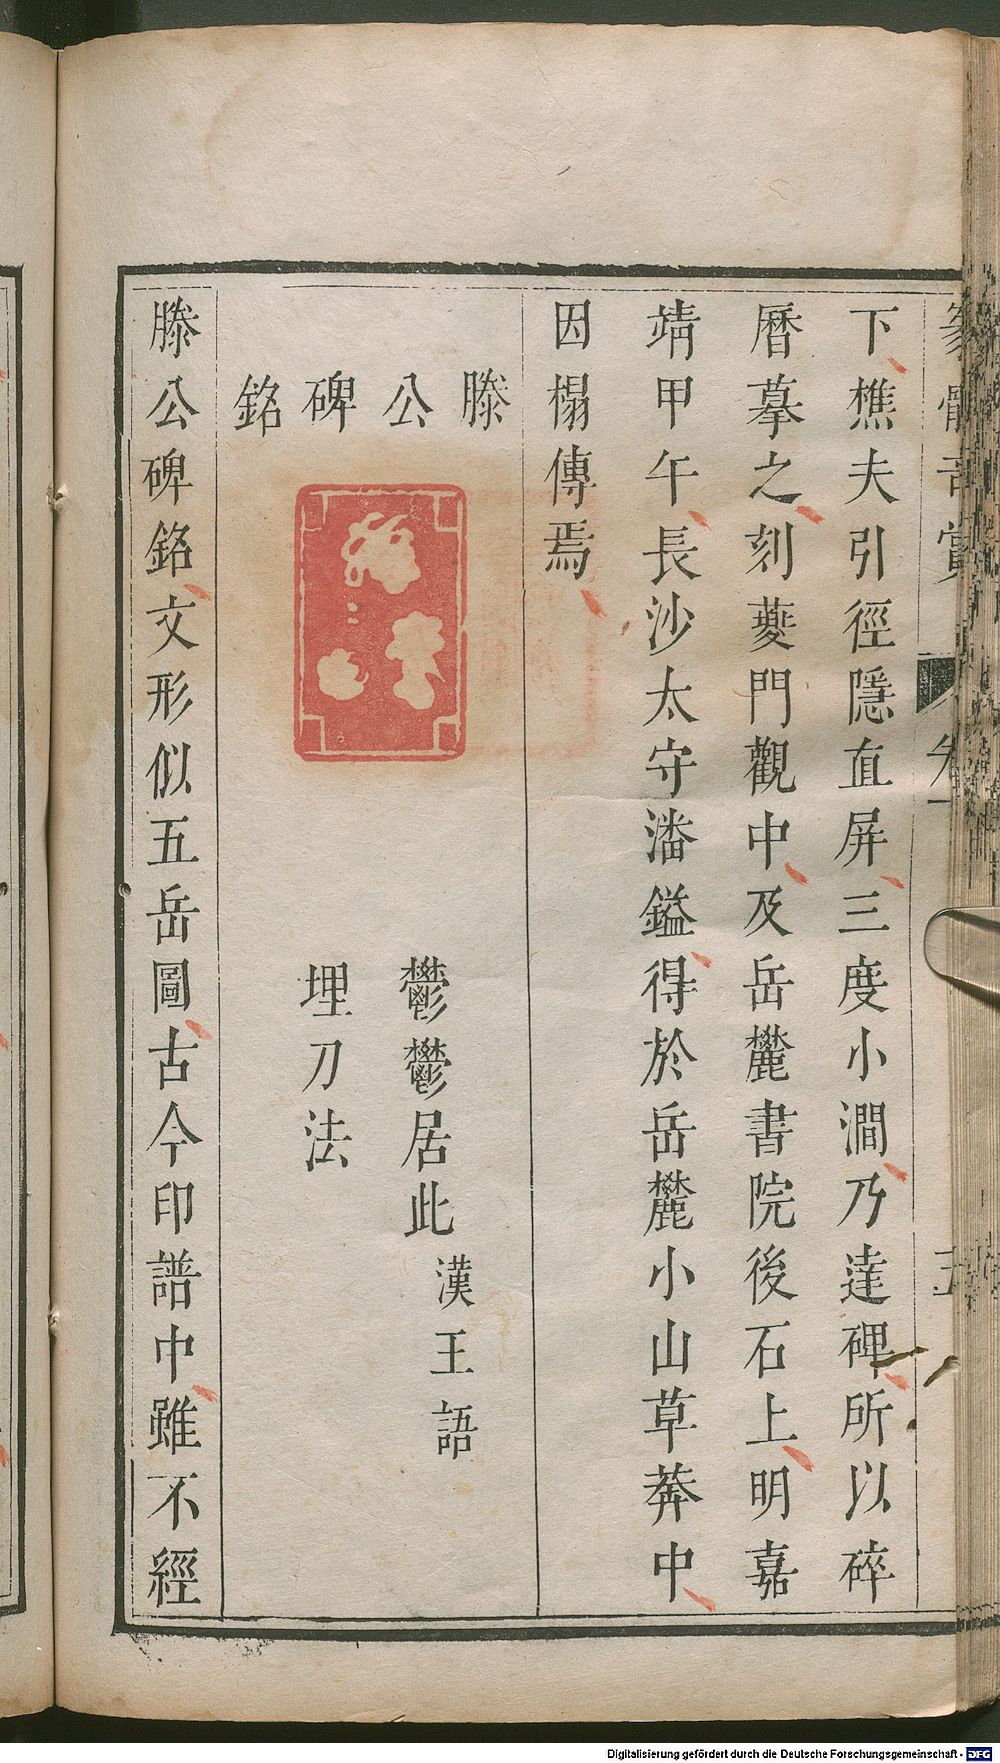 下樵夫引徑隱直屏三度小澗乃達碑所以碎
曆摹之刻夔門觀中及岳麓書院後石上明嘉
靖甲午長沙太守潘鎰得於岳麓小山草莽中
因榻傳焉
滕公碑銘
鬱鬱居此 漢王語
埋刀法
滕公碑銘文形似五岳圖古今印譜中雖不經
Digitalisierung gefördert durch die Deutsche Forschungsgemeinschaft - DFG